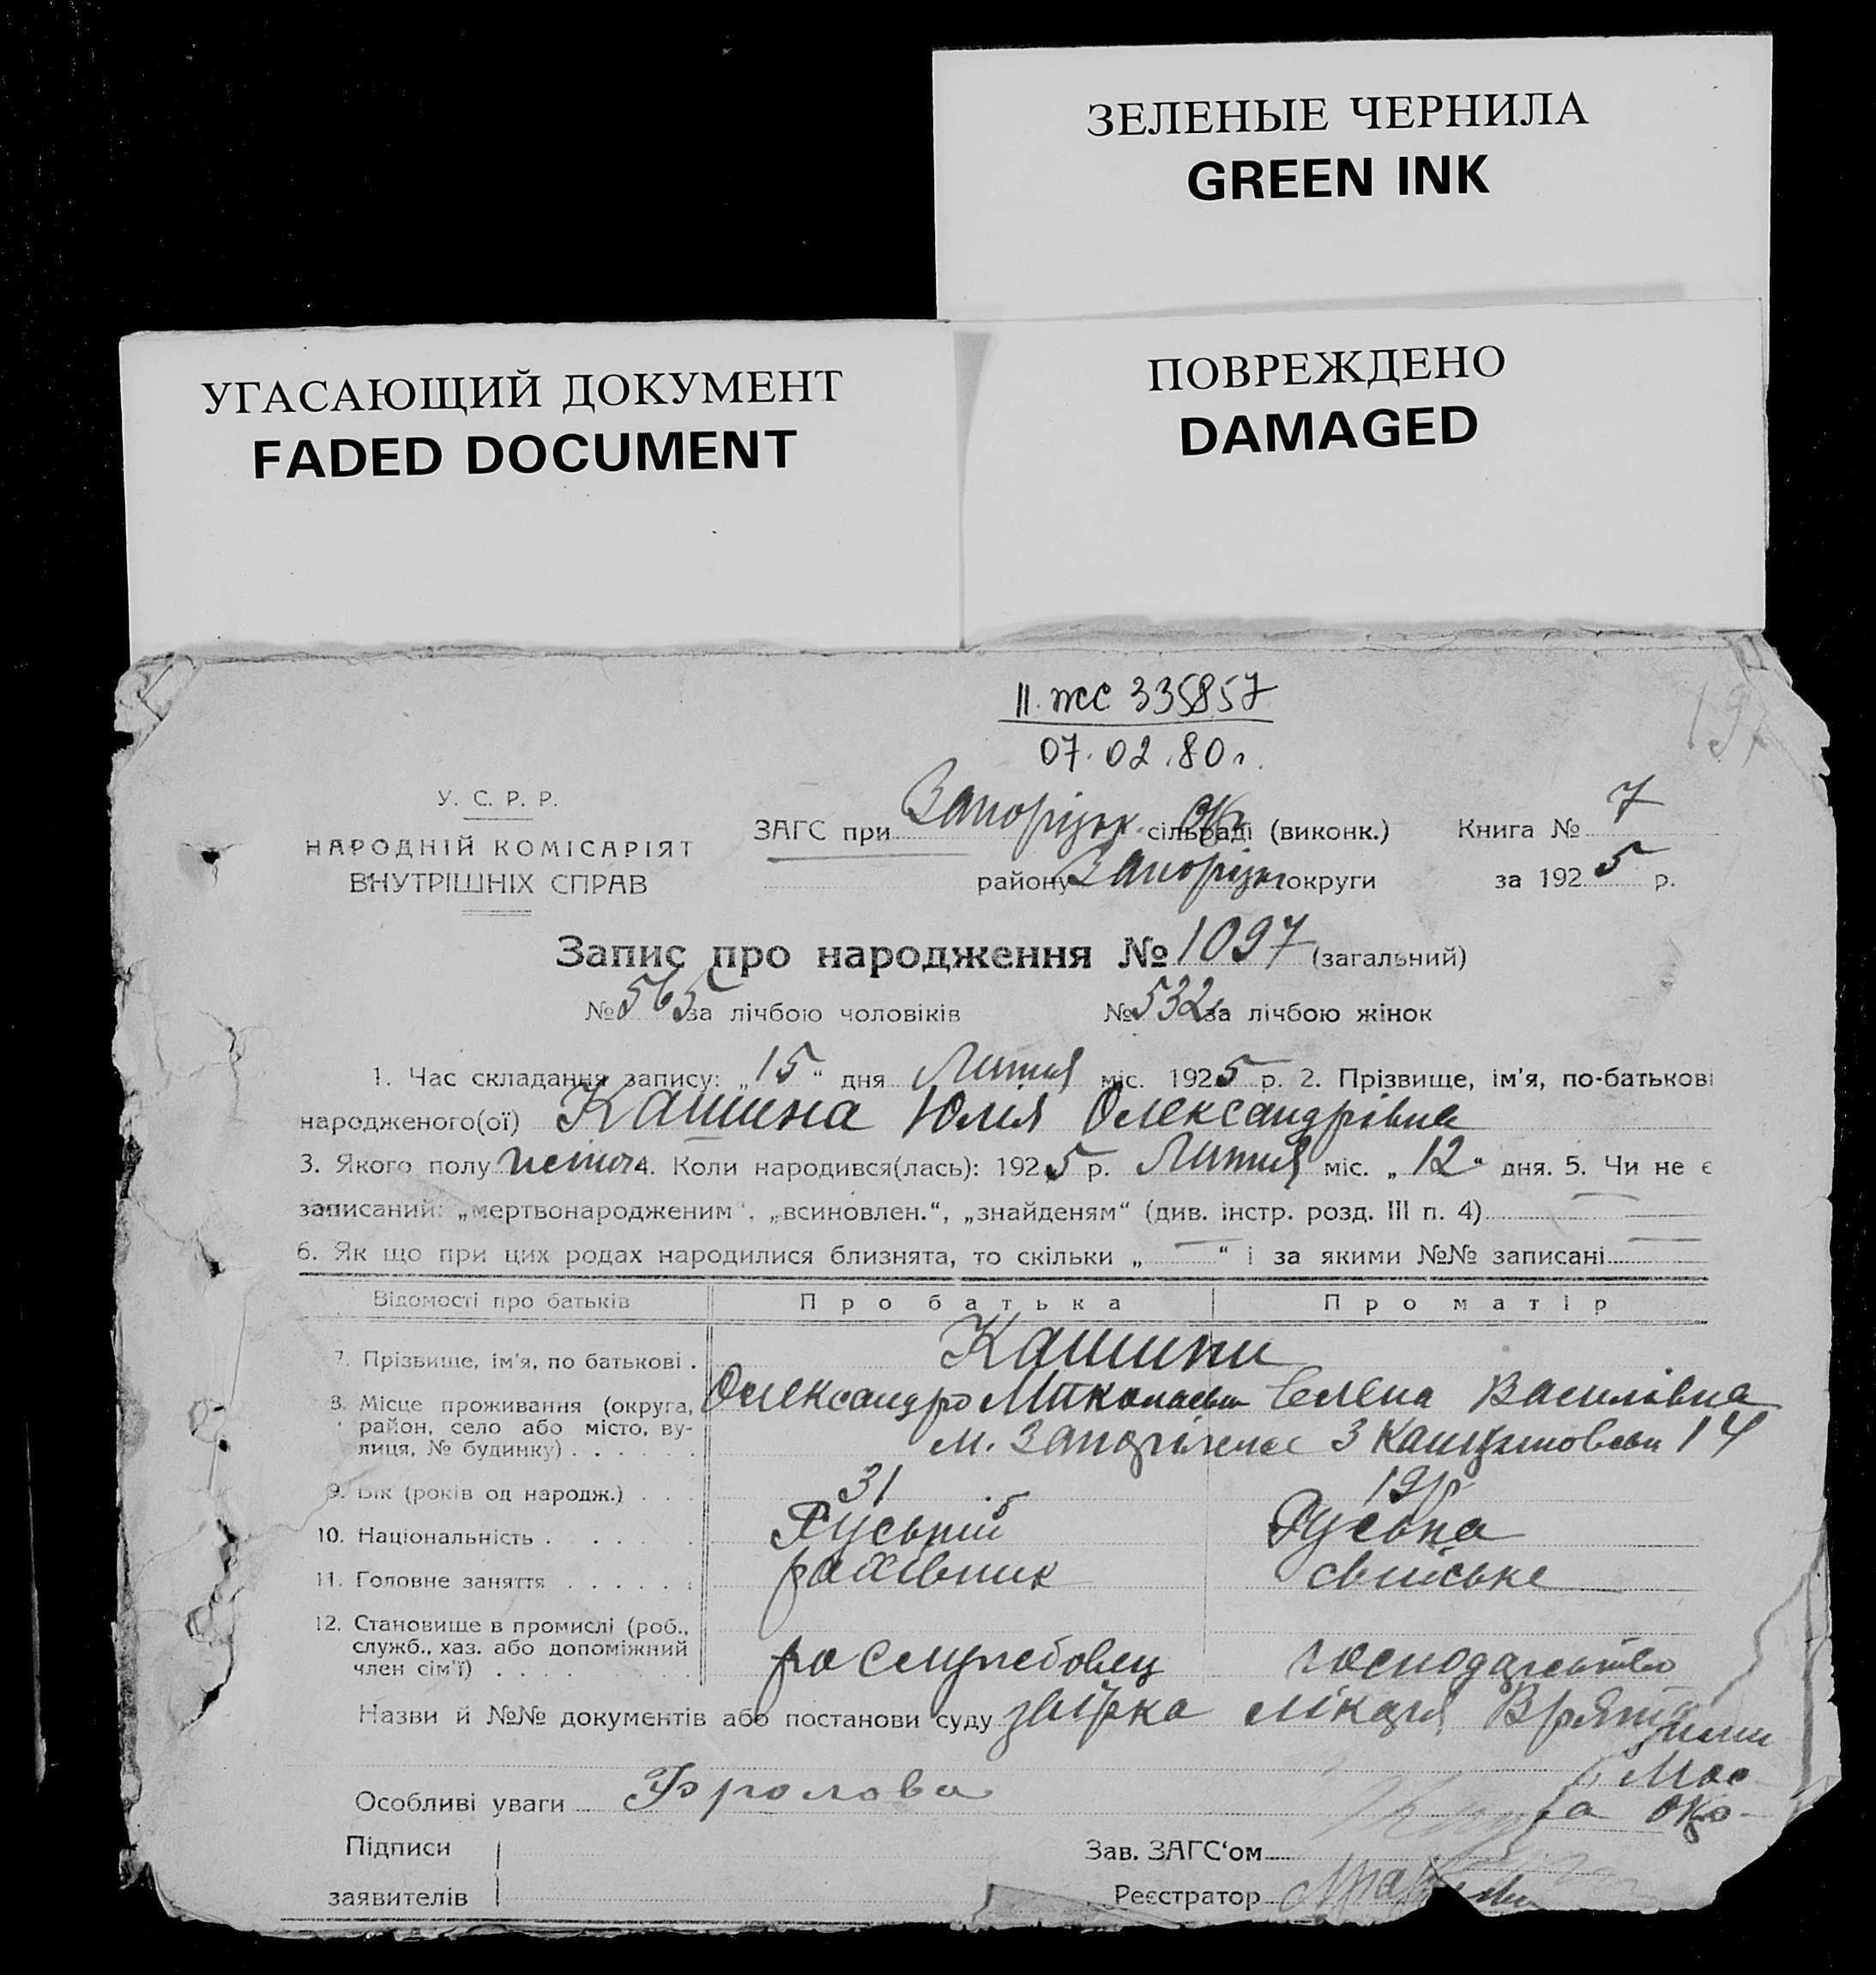 ЗЕЛЕНЫЕ ЧЕРНИЛА
GREEN INK
УГАСАЮЩИЙ ДОКУМЕНТ
FADED DOCUMENT
ПОВРЕЖДЕНО
DAMAGED
II. жс 335857
197
07.02.80г.
У. С. Р. Р.
НАРОДНІЙ КОМІСАРІЯТ
ВНУТРІШНІХ СПРАВ
ЗАГС при Запорізьк. Окр сільраді (виконк.) Книга № 7
району Запорізьк округи за 1925 р.
Запис про народження № 1097 (загальний)
№ 565 за лічбою чоловіків № 532 за лічбою жінок
1. Час складання запису: „15“ дня Лютня міс. 1925 р. 2. Прізвище, ім'я, по-батькові
народженого(ої) Кашина Юлія Олександрівна
3. Якого полу жіноч 4. Коли народився(лась): 1925 р. Лютня міс. „12“ дня. 5. Чи не є
записаний: „мертвонародженим“, „всиновлен.“, „знайденям“ (див. інстр. розд. III п. 4)
6. Як що при цих родах народилися близнята, то скільки „ — “ і за якими №№ записані —
Відомості про батьків Про батька Про матір
7. Прізвище, ім'я, по батькові . Кашини
8. Місце проживання (округа, Олександро Миколаєвич Єлена Василівна
район, село або місто, ву-
лиця, № будинку) . . . . . . м. Запоріжже 14
9. Вік (років од народж.) . . . 31 19р
10. Національність . . . . . Руський Руська
11. Головне заняття . . . . . . рахівник свійське
12. Становище в промислі (роб.,
служб., хаз. або допоміжний
член сім'ї) . . . . службовец господарство
Назви й №№ документів або постанови суду лікаря
Особливі уваги Фролова
Підписи Зав. ЗАГС'ом
заявителів Реєстратор